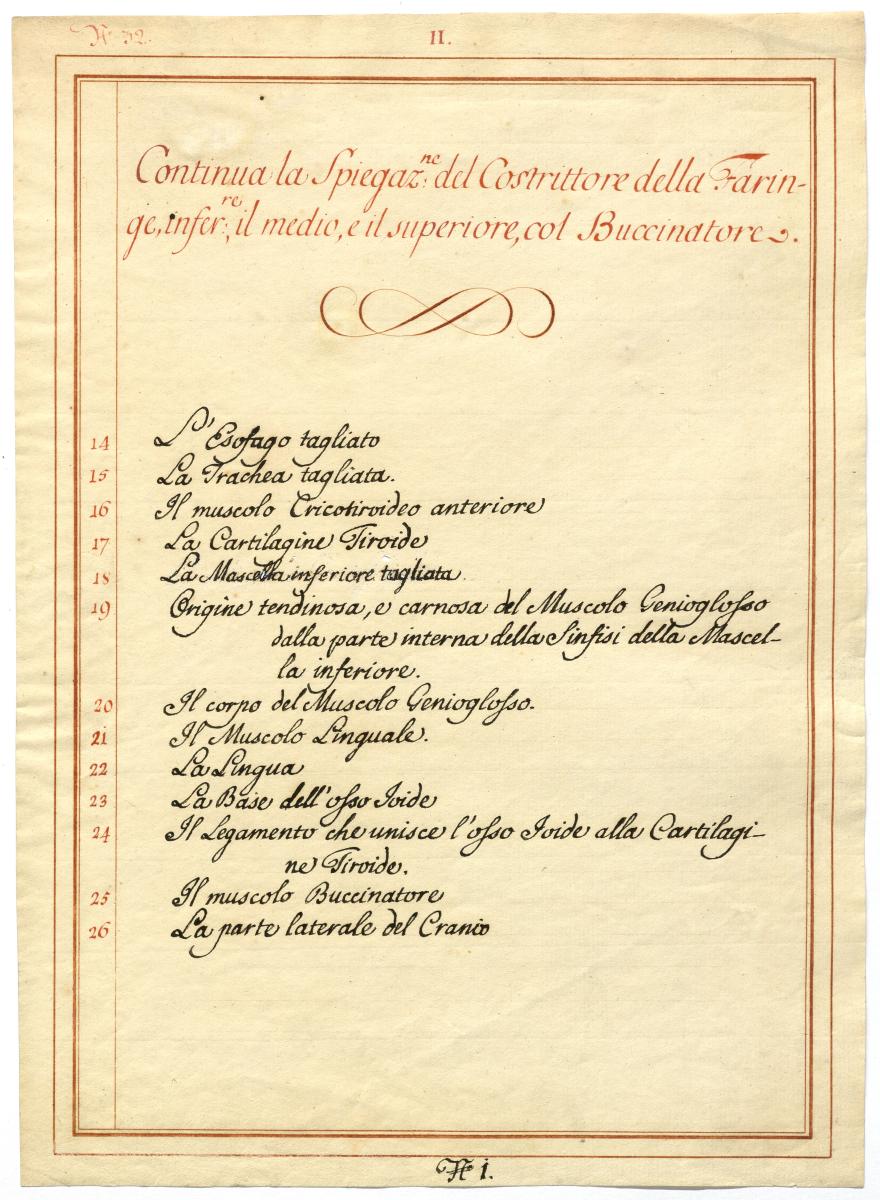 N.º 32.
II.
Continua la Spiegaz.ne del Costrittore della Farin-
ge, infer.re, il medio, e il superiore, col Buccinatore.
14 L'Esofago tagliato
15 La Trachea tagliata.
16 Il muscolo Cricotiroideo anteriore
17 La Cartilagine Tiroide
18 La Mascella inferiore tagliata
19 Origine tendinosa, e carnosa del Muscolo Genioglosso
dalla parte interna della Sinfisi della Mascel-
la inferiore.
20 Il corpo del Muscolo Genioglosso.
21 Il Muscolo Linguale.
22 La Lingua
23 La Base dell'osso Ioide
24 Il Legamento che unisce l'osso Ioide alla Cartilagi-
ne Tiroide.
25 Il muscolo Buccinatore
26 La parte laterale del Cranio
N.º 1.